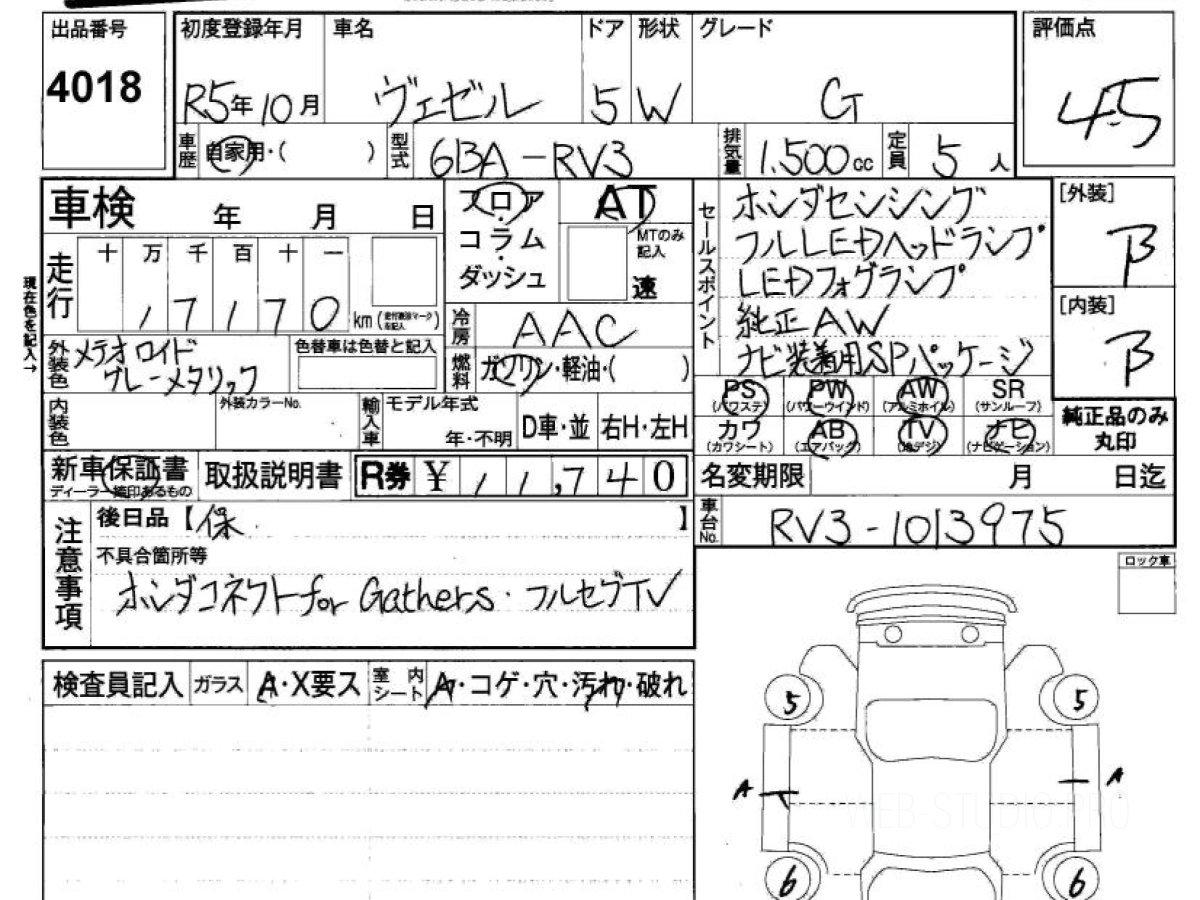 出品番号 初度登録年月 車名 ドア 形状 グレード 評価点
4018 R5年10月 ヴェゼル 5 W G 4.5
車歴 自家用・( ) 型式 6BA-RV3 排気量 1.500cc 定員 5人
車検 年 月 日 フロア・コラム・ダッシュ AT MTのみ記入 速
セールスポイント ホンダセンシング
フルLEDヘッドランプ
LEDフォグランプ
純正AW
ナビ装着用SPパッケージ
[外装] B
[内装] B
現在色を記入→
走行 十 万 千 百 十 一
17170 km
冷房 AAC
外装色 メテオロイドグレーメタリック 色替車は色替と記入
燃料 ガソリン・軽油・( )
PS (パワステ) PW (パワーウインド) AW (アルミホイル) SR (サンルーフ)
カワ (カワシート) AB (エアバッグ) TV (地デジ) ナビ (ナビゲーション)
純正品のみ丸印
内装色 外装カラーNo. 輸入車 モデル年式 年・不明 D車・並 右H・左H
新車保証書 ディーラー捺印あるもの 取扱説明書 R券 ¥ 11,740
名変期限 月 日迄
注意事項 後日品【保 】
車台No. RV3-1013975
不具合箇所等
ホンダコネクトfor Gathers・フルセグTV
ロック車
検査員記入 ガラス A・X要ス 室内シート A・コゲ・穴・汚れ・破れ
5 5
A A
WEB-STUDIO.PRO
6 6